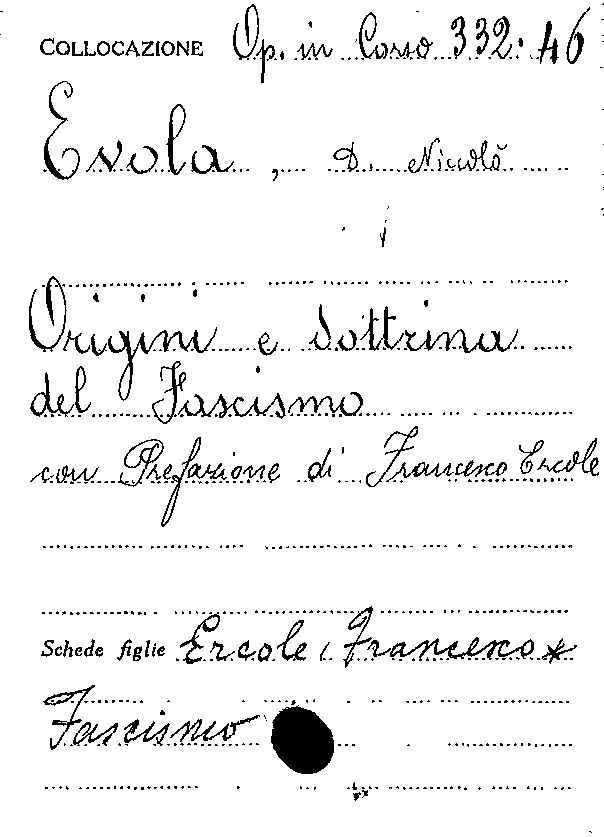 COLLOCAZIONE Op. in Corso 332. 46
Evola, D. Niccolò
Origini e dottrina
del Fascismo
con Prefazione di Francesco Ercole
Schede figlie Ercole, Francesco *
Fascismo